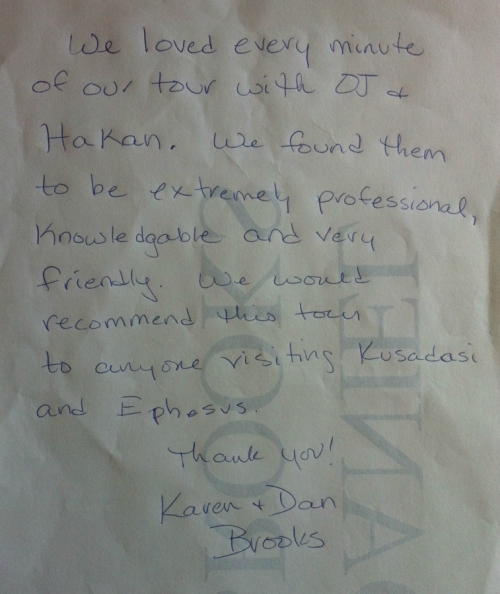 We loved every minute
of our tour with OJ &
Hakan. We found them
to be extremely professional,
Knowledgable and very
friendly. We would
recommend this tour
to anyone visiting Kusadasi
and Ephesus.
Thank you!
Karen + Dan
Brooks